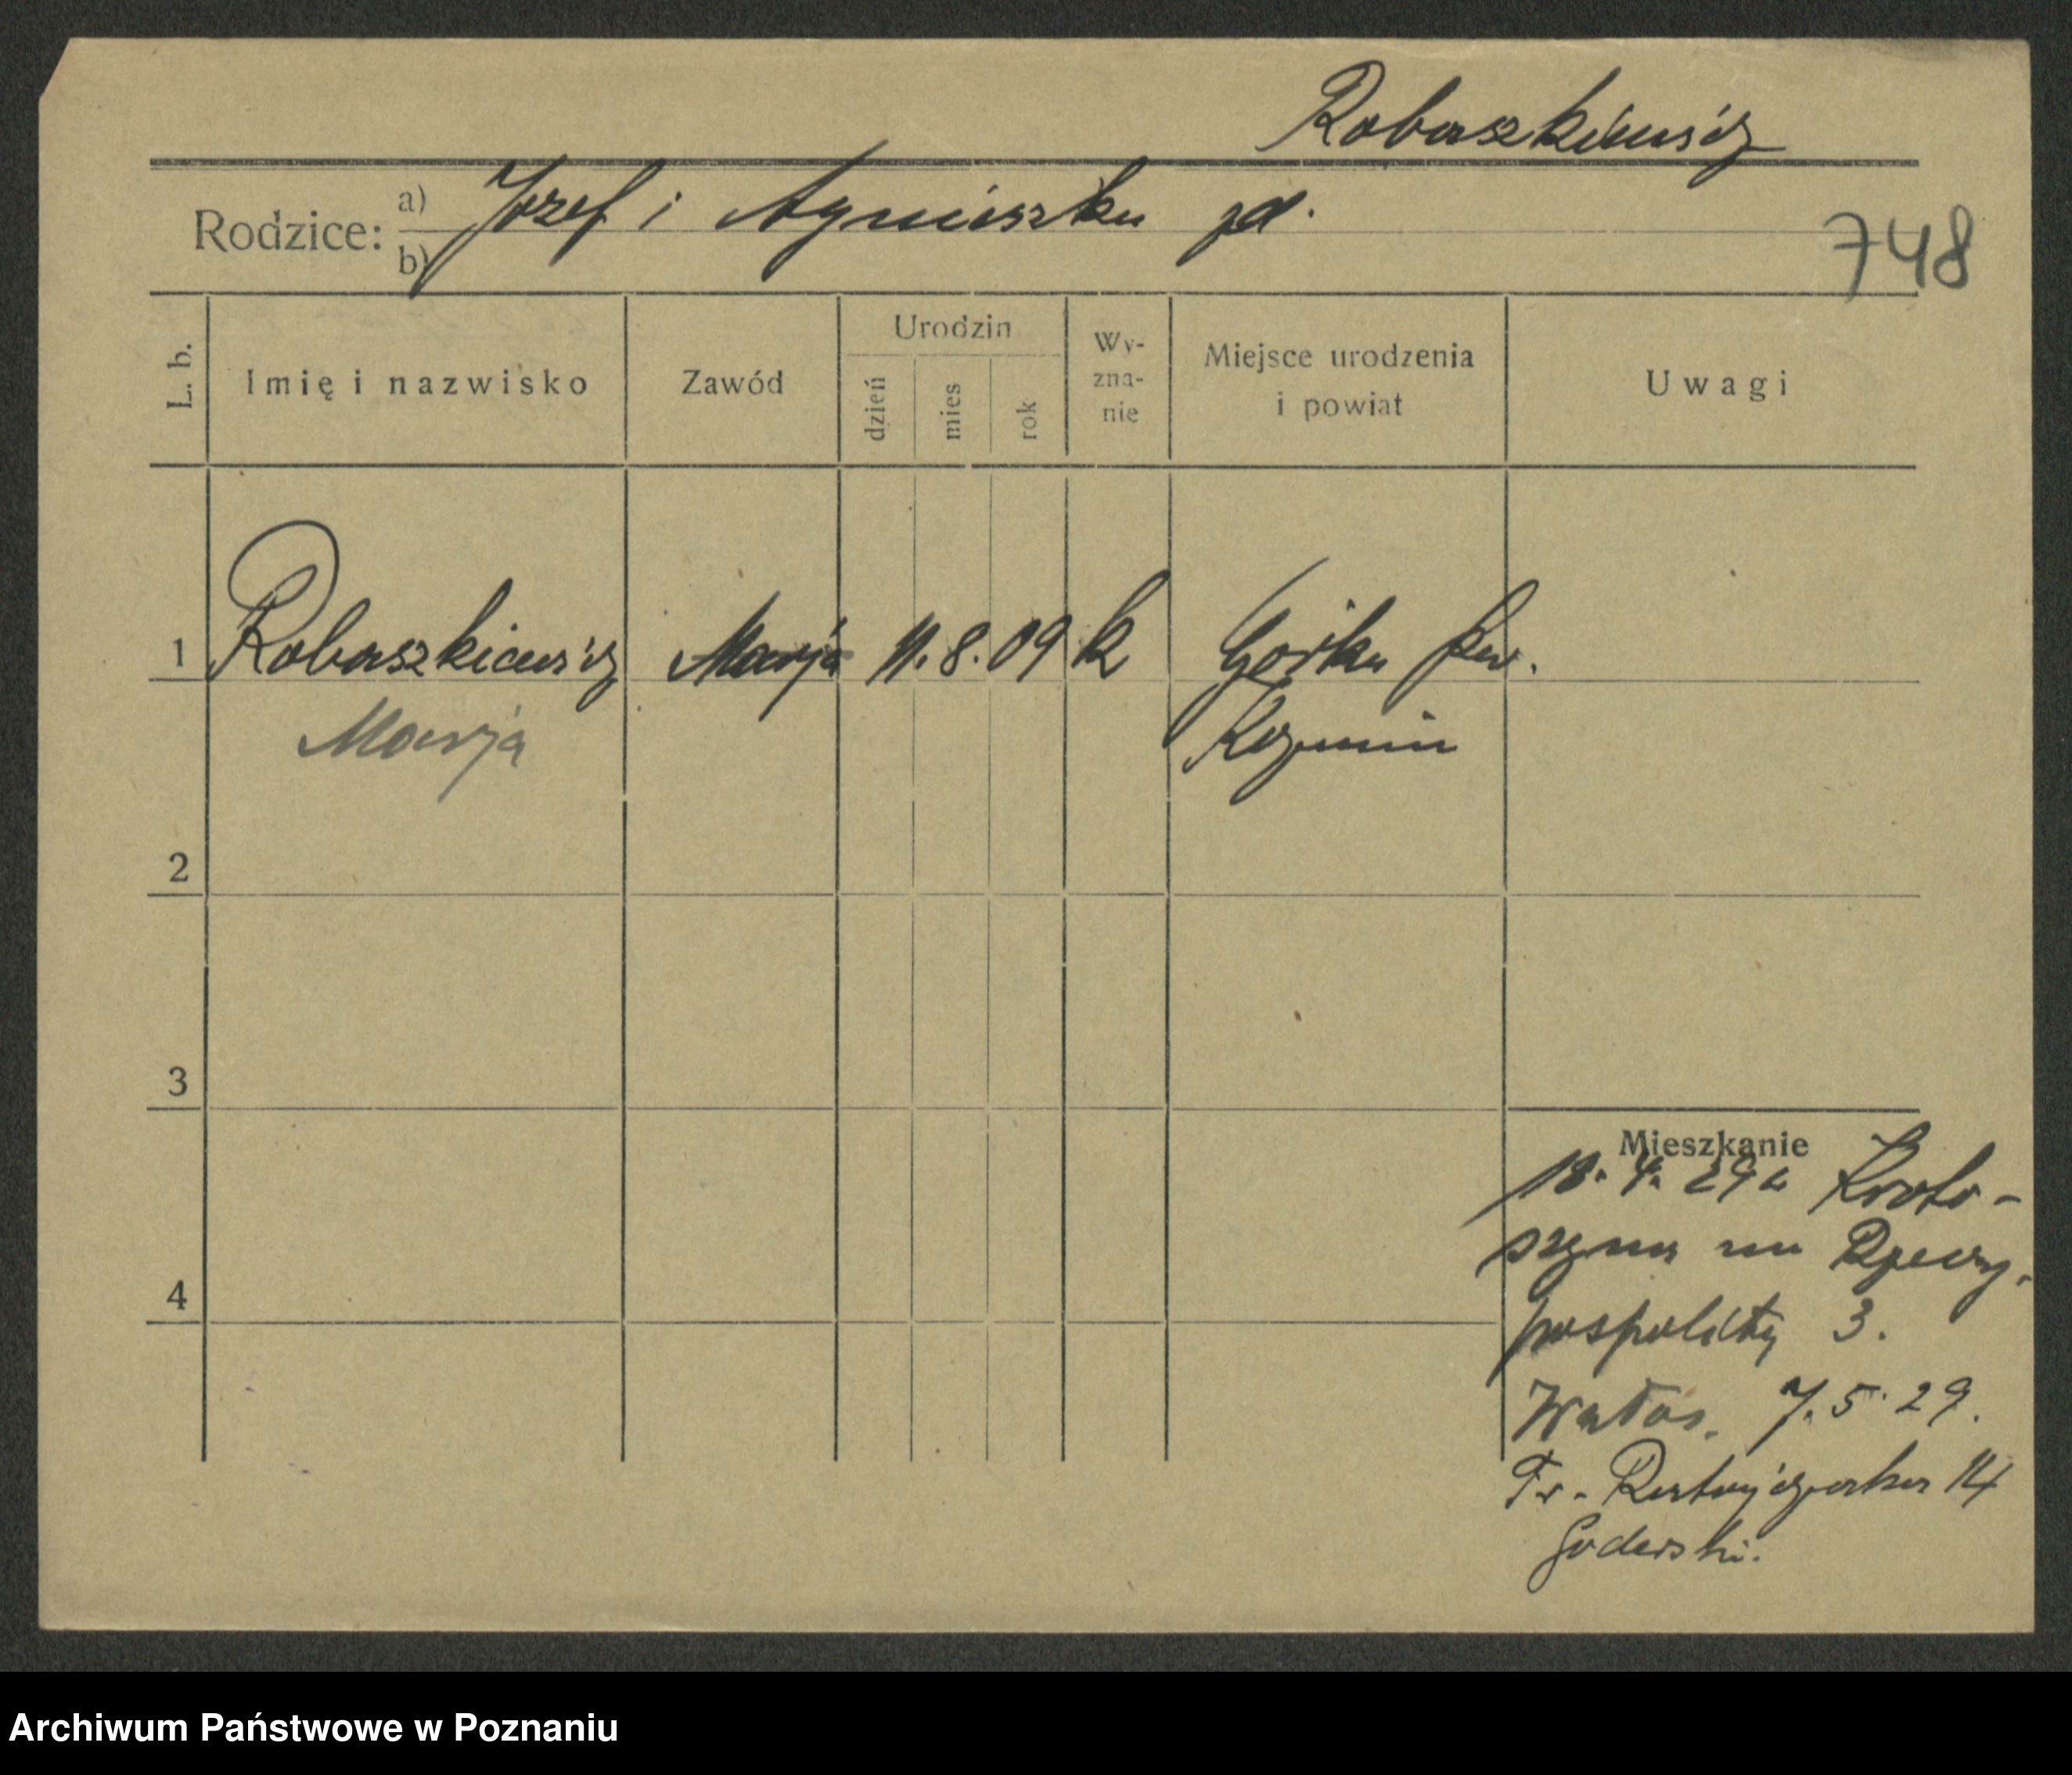 Robaszkiewicz
Rodzice: a) Józef i Agnieszka
b)
748
L. b.
Imię i nazwisko
Zawód
Urodzin
dzień
mies
rok
Wy-
zna-
nie
Miejsce urodzenia
i powiat
Uwagi
1 Robaszkiewicz Marja 11. 8. 09 k Górka pow.
Marja Kozmin
2
3
4
Mieszkanie
18. 4. 29 z Kroto-
szyna na Rzeczy-
pospolitej 3.
7. 5. 29.
Fr. Ratajczaka 14
Goderski.
Archiwum Państwowe w Poznaniu